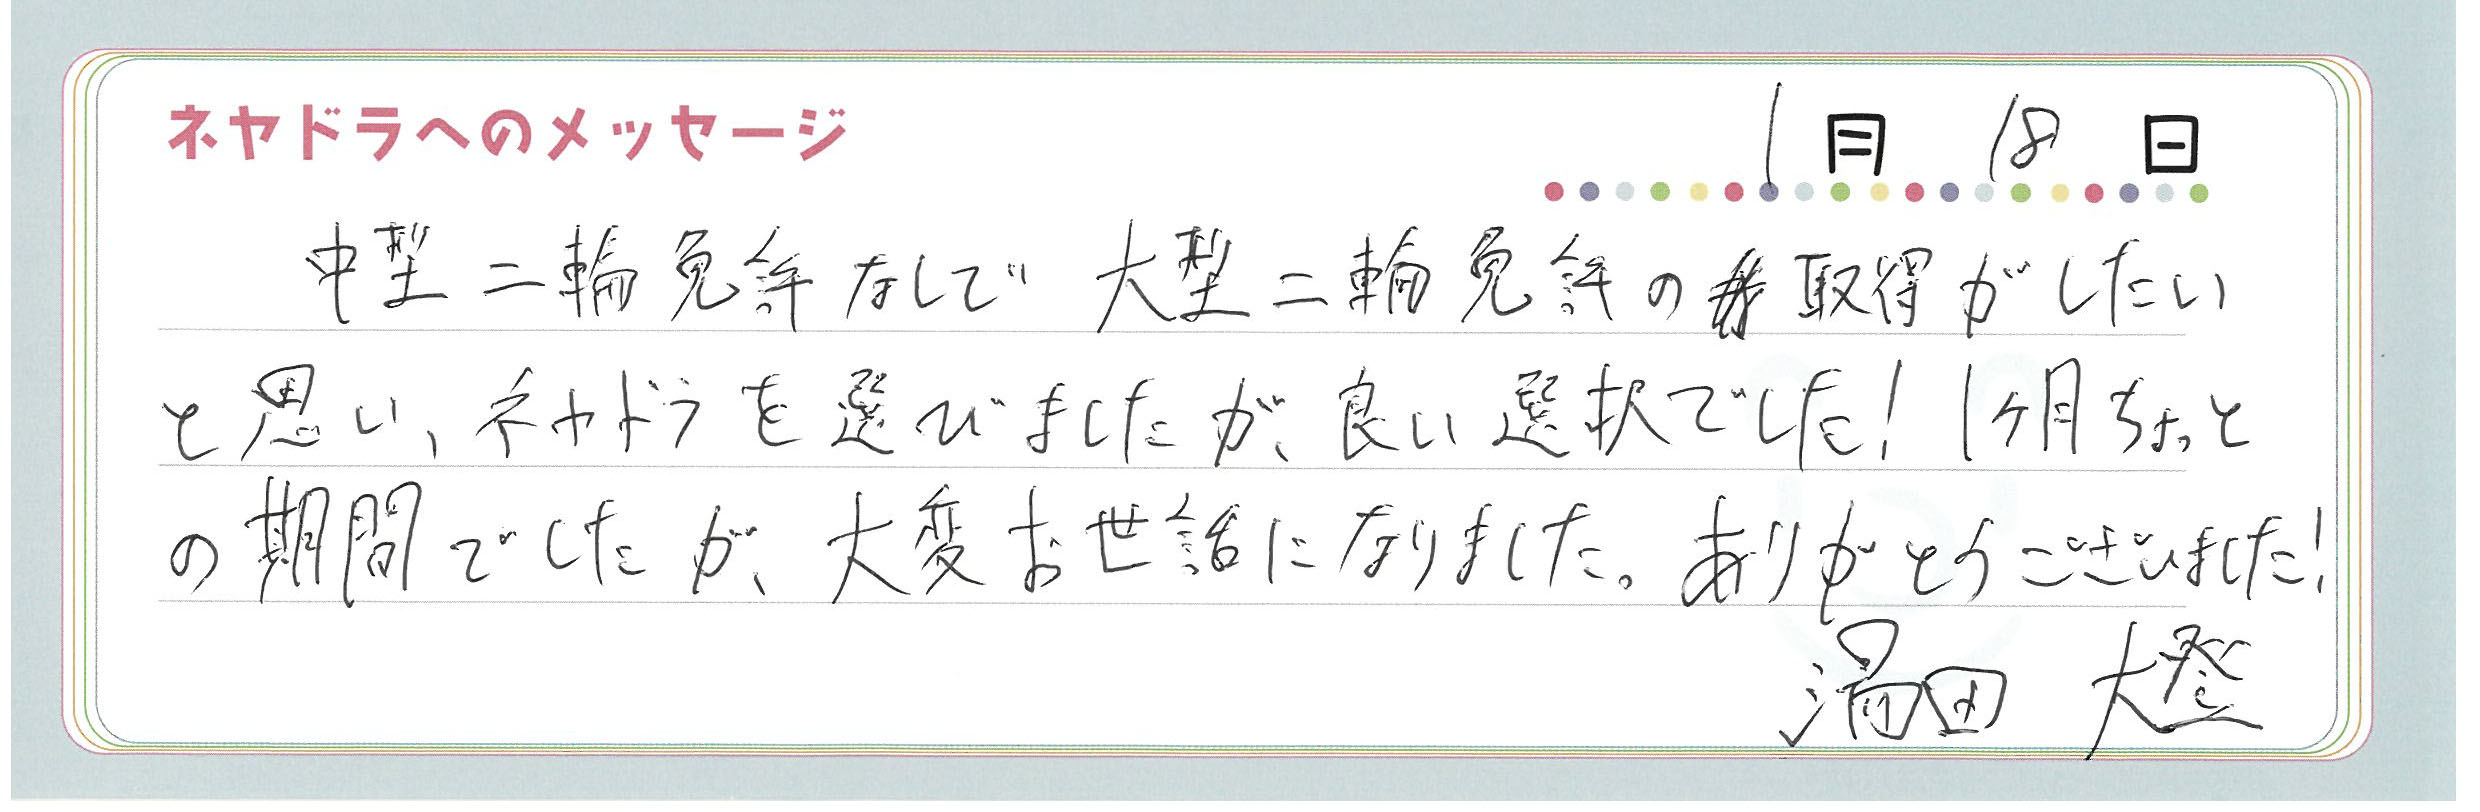 ネヤドラへのメッセージ
1月 18日
中型二輪免許なしで 大型二輪免許の取得がしたい
と思い、ネヤドラを選びましたが、良い選択でした!1ヶ月ちょっと
の期間でしたが、大変お世話になりました。ありがとうございました!
湯田 大登